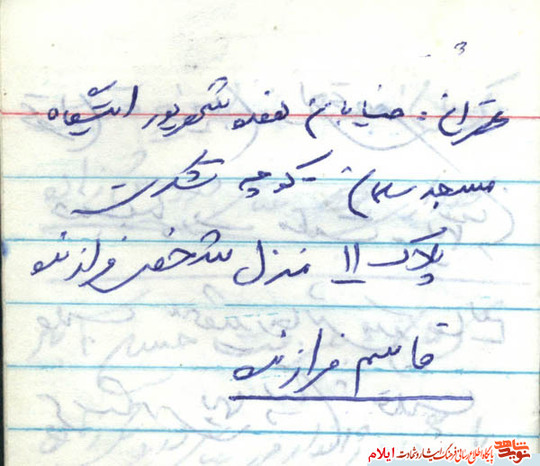 تهران: خیابان هفده شهریور ایستگاه
مسجد سلمان - کوچه
پلاک ۱۱ منزل شخصی فرازنده
قاسم فرازنده
نوید شاهد
پایگاه اطلاع رسانی فرهنگ ایثار و شهادت ایلام